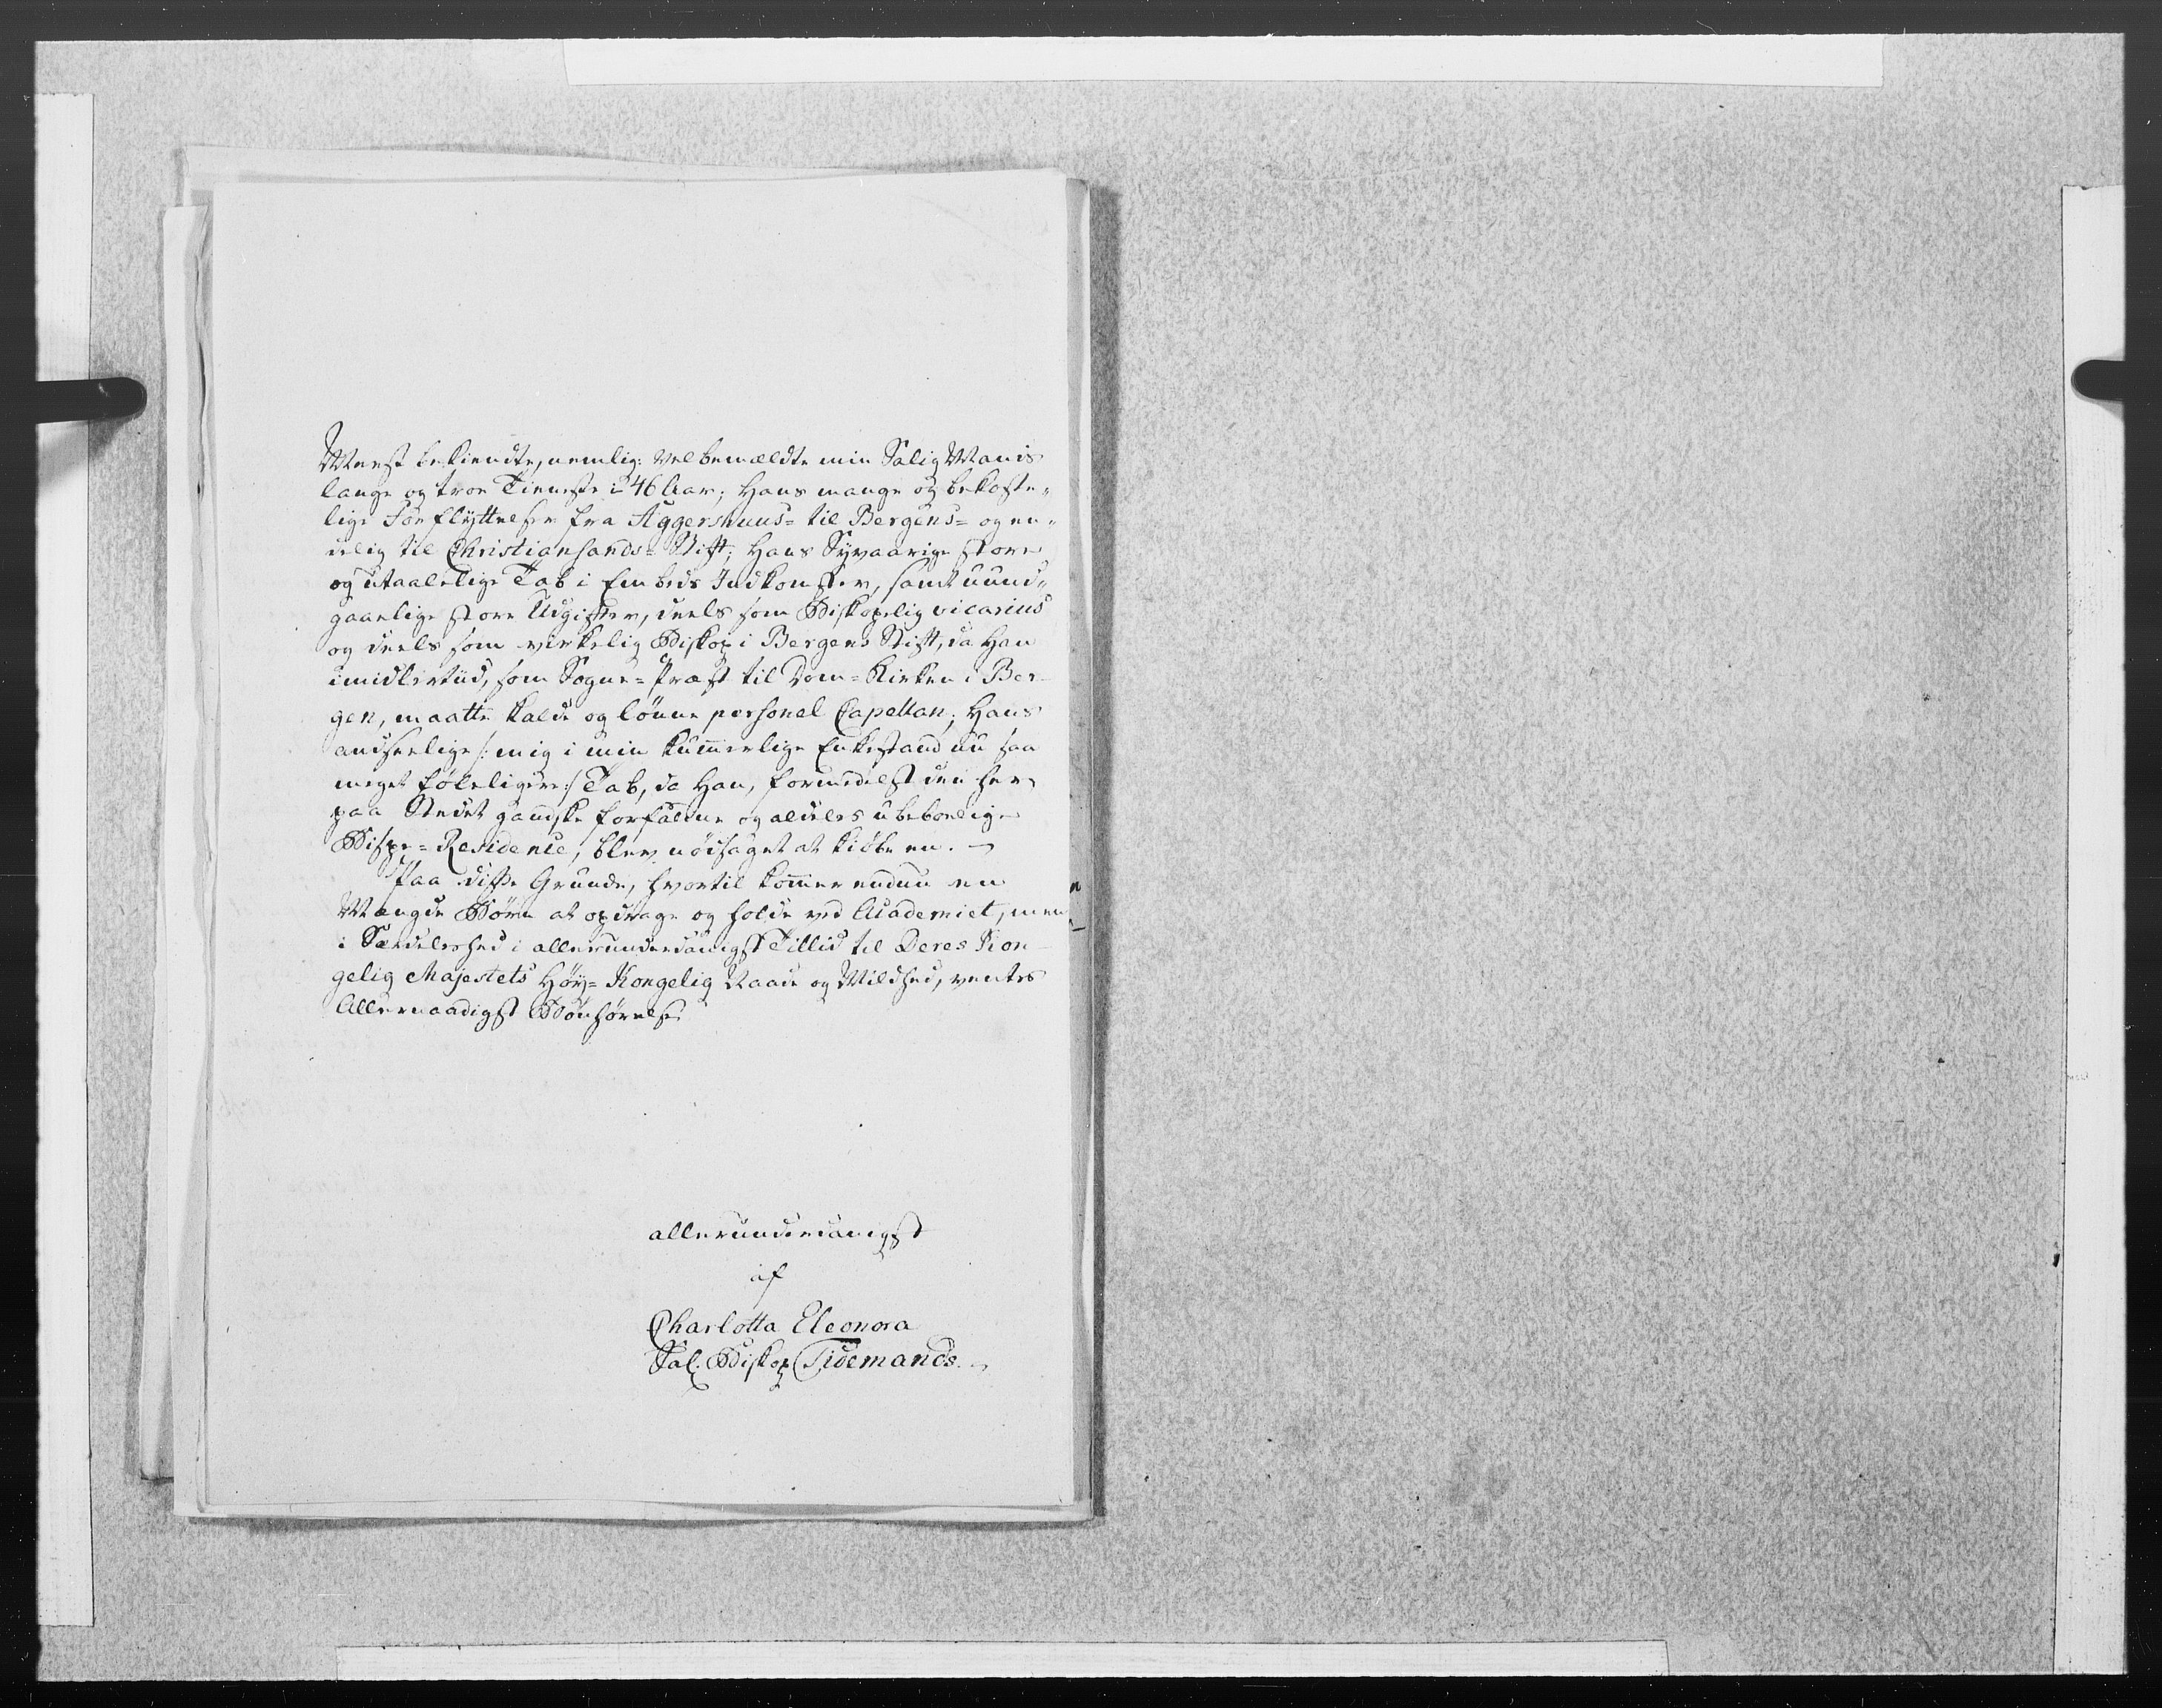 Meest bekiendte, nemlig: Velbemældte min Salig Mands
lange og troe Tieneste i 46 Aar; Hans mange og bekoste„
lige Forflyttelser fra Aggershuus= til Bergens= og en„
delig til Christiansands= Stift; Hans Syvaarige store
og utaalelige Tab i Embeds Indkomster, samt uund„
gaaelige store Udgifter, deels som Biskopelig vicarius
og deels som virkelig Biskop i Bergens Stift, da Han
imidlertiid, som Sogne=Præst til Dom=Kirken i Ber-
gen, maatte kalde og lönne personel Capellan; Hans
andseelige /: mig i min kummerlige Enkestand nu saa
meget föleligere :/ Tab, da Han, formedelst den her
paa Stedet gandske forfaldne og aldeles ubeboelige
Bispe=Residence, blev nödsaget at kiöbe en. —
Paa disse Grunde, hvortil kommer endnu en
Mængde Börn at opdrage og holde ved Academiet, men
i Særdeleshed i allerunderdanigst Tillid til Deres Kon-
gelig Majestets Höy=Kongelig Naade og Mildhed, ventes
Allernaadigst Bönhörelse
allerunderdanigst
af
Charlotta Eleonora
Sal. Biskop Tidemands.